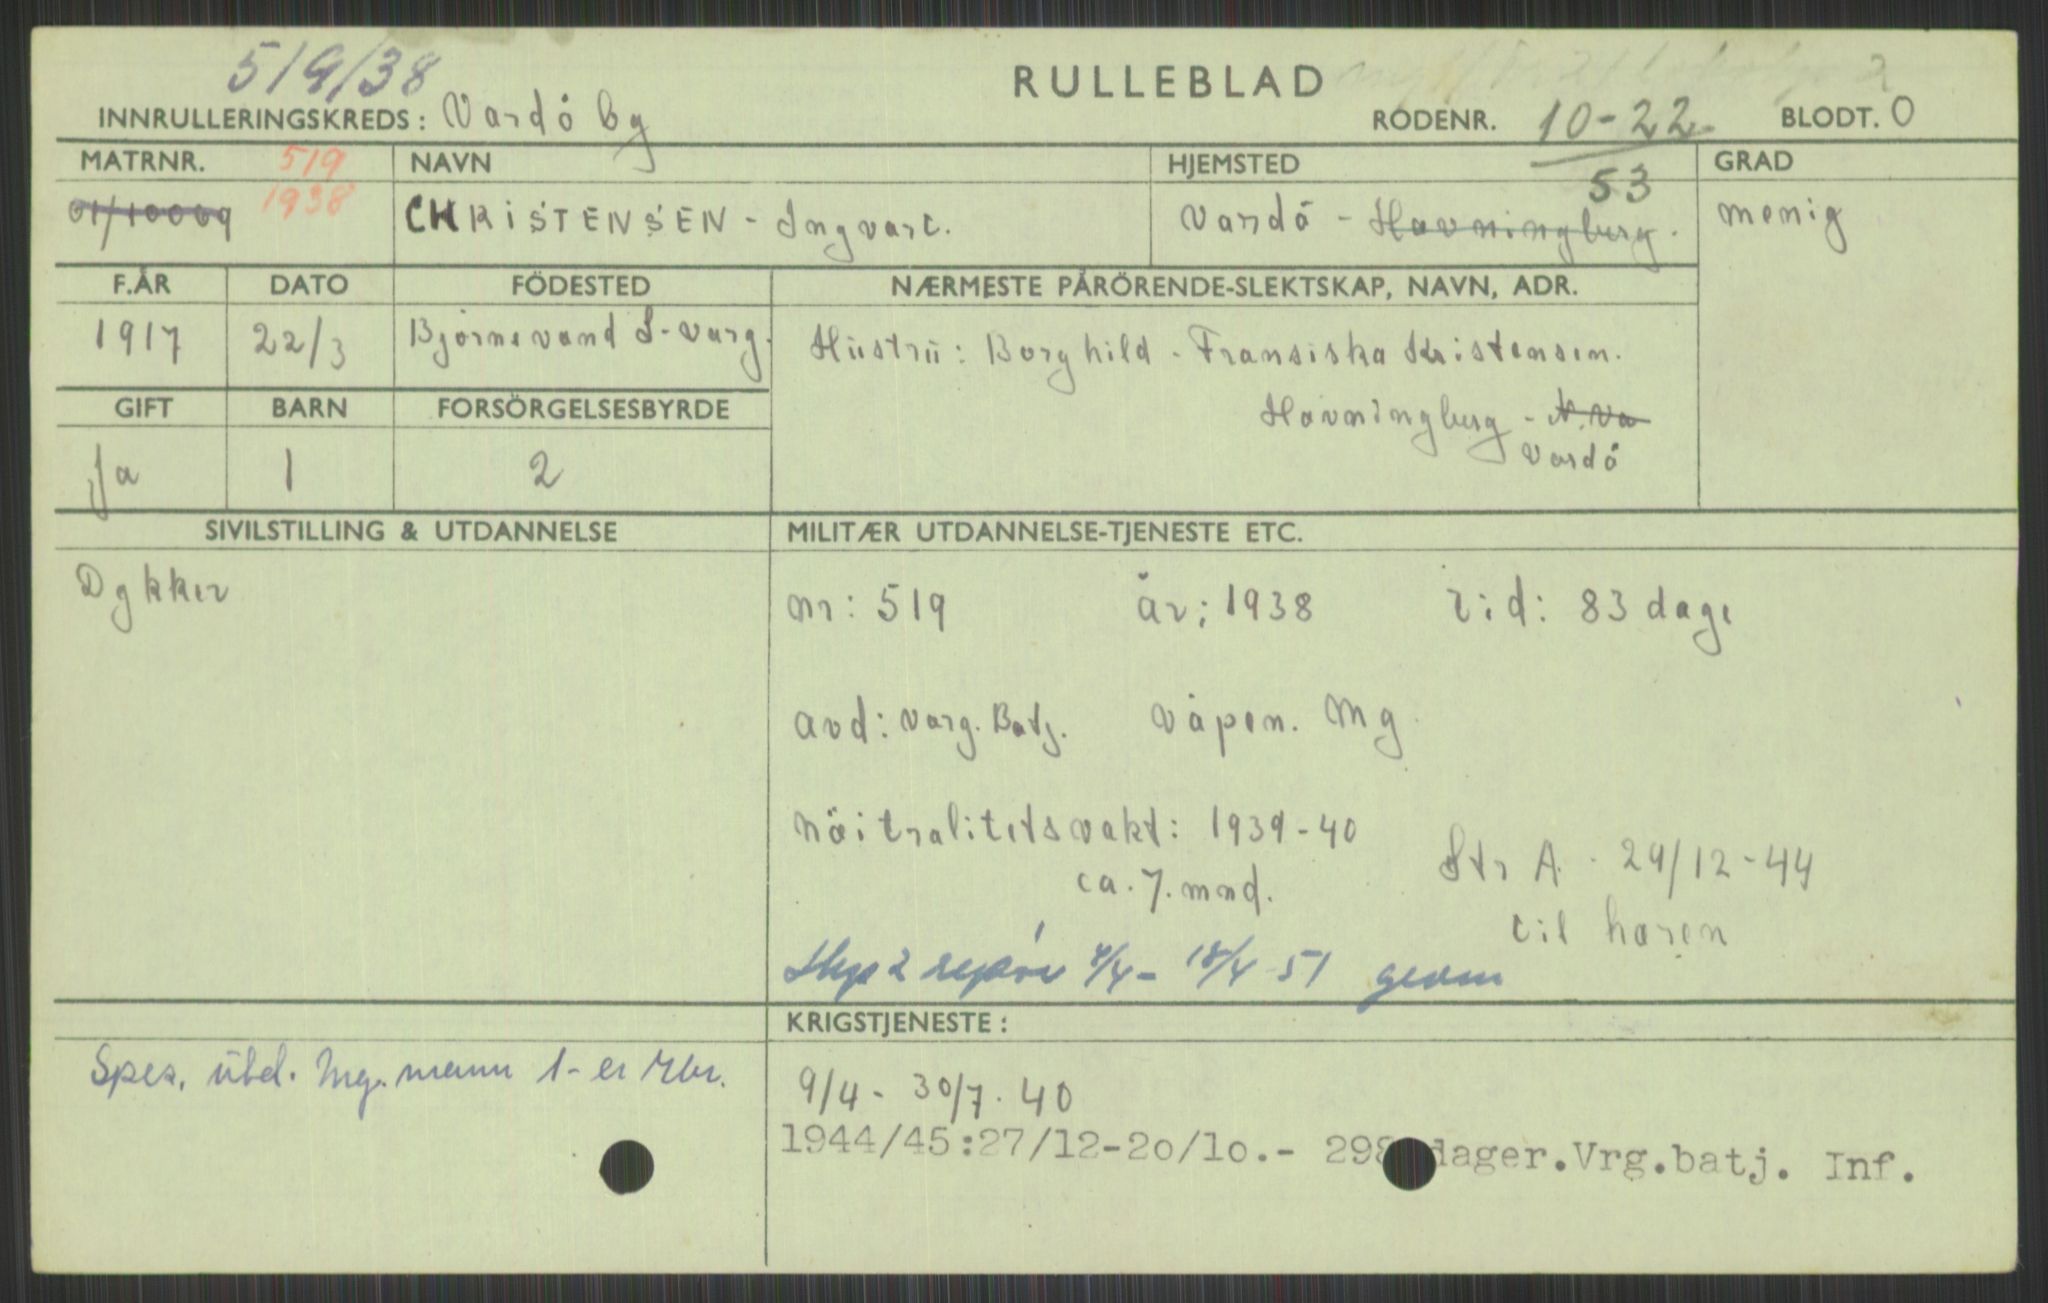 519/38
RULLEBLAD
INNRULLERINGSKREDS: Vardö by
RODENR. 10-22 BLODT. O
53
MATRNR. 519 NAVN HJEMSTED GRAD
01/10009 1938 CHRISTENSEN - Ingvart. Vardö - Havningberg. menig
F.ÅR DATO FÖDESTED NÆRMESTE PÅRÖRENDE-SLEKTSKAP, NAVN, ADR.
1917 22/3 Björnevand S-Varg. Hüstrü: Borghild - Fransiska Kristensen.
GIFT BARN FORSÖRGELSESBYRDE
Havningberg - N. Va
Ja 1 2 Vardö
SIVILSTILLING & UTDANNELSE MILITÆR UTDANNELSE-TJENESTE ETC.
Dykker
nr: 519 år; 1938 tid: 83 dage
avd: Varg. Batj. våpen. Mg.
Nöitralitetsvakt: 1939-40
ca. 7. mnd.
Str A. 29/12-44
til hæren
2 4/4 - 18/4 51
KRIGSTJENESTE:
Spes. übd. Mg. mann 1-er
9/4 - 30/7. 40
1944/45:27/12-20/10.- 298 dager.Vrg.batj. Inf.